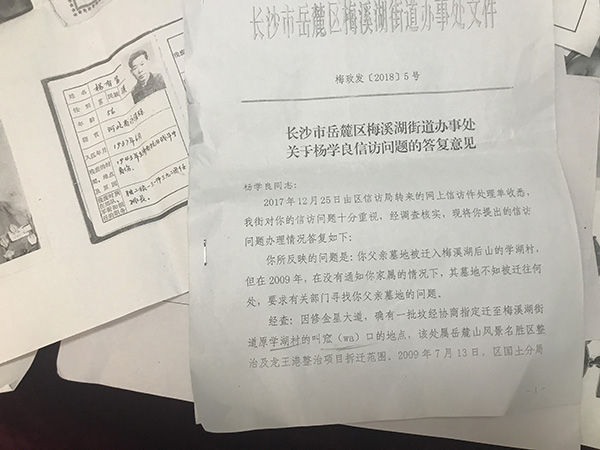 长沙市岳麓区梅溪湖街道办事处文件
梅政发〔2018〕5号
长沙市岳麓区梅溪湖街道办事处
关于杨学良信访问题的答复意见
杨学良同志：
2017年12月25日由区信访局转来的网上信访件处理单收悉，
我街对你的信访问题十分重视，经调查核实，现将你提出的信访
问题办理情况答复如下：
你所反映的问题是：你父亲墓地被迁入梅溪湖后山的学湖村，
但在2009年，在没有通知你家属的情况下，其墓地不知被迁往何
处，要求有关部门寻找你父亲墓地的问题。
经查：因修金星大道，确有一批坟经协商指定迁至梅溪湖街
道原学湖村的叫窊（wa）口的地点，该处属岳麓山风景名胜区整
治及龙王港整治项目拆迁范围。2009年7月13日，区国土分局
- 1 -
姓名
性别 男
年龄 56
籍贯
入伍年月 1937年6月